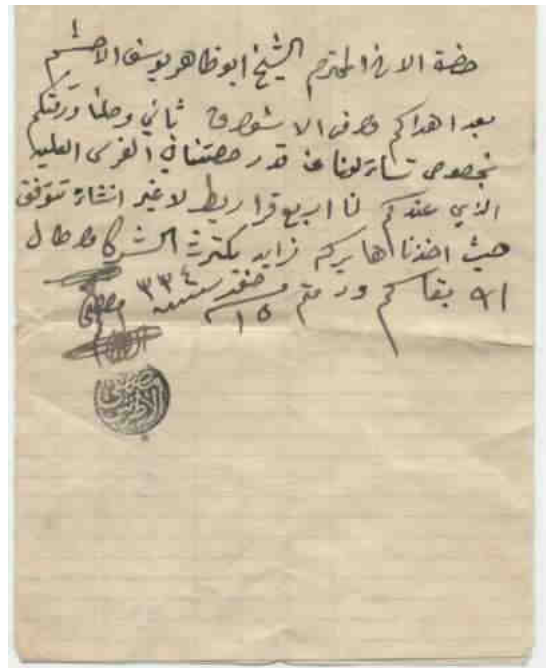 حضرة الاخ المحترم الشيخ ابو ظاهر يوسف الاحشم
بعد اهداكم وافر الاشواق ثاني وصلنا ورقتكم
بخصوص تسائلونا عن قدر حصتنا في الفرس العليه
الذي عندكم لنا اربع قراريط لا غير انشاء تتوفق
حيث اخذناها بركه زايد بكثرت الشركا واطال
الله بقاكم ودمتم
١٥ سنة ٣٣٤
مصطفى